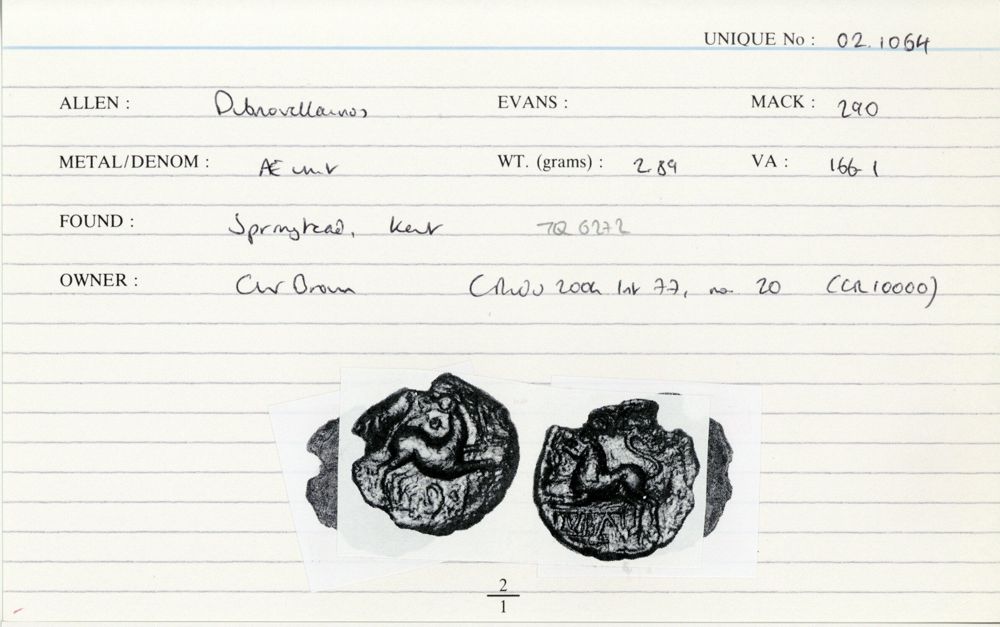 UNIQUE No : 02.1064
ALLEN : Dubnovellaunos EVANS : MACK : 290
METAL/DENOM : Æ unit WT. (grams) : 2.89 VA : 166-1
FOUND : Springhead, Kent TQ 6272
OWNER : Chr Brown 20 (CR10000)
2
1